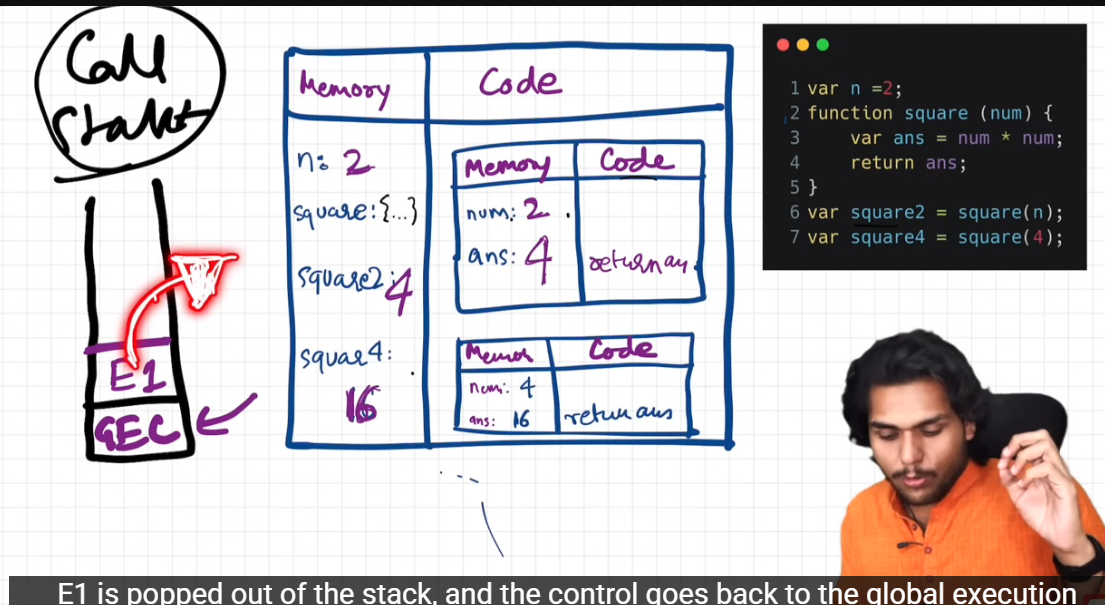 Call
Stack
E1
GEC
Memory
Code
n: 2
square:{...}
square2: 4
squar4:
16
Memory
Code
num: 2
ans: 4
return an
Memor
Code
num: 4
ans: 16
return ans
1 var n =2;
2 function square (num) {
3 var ans = num * num;
4 return ans;
5 }
6 var square2 = square(n);
7 var square4 = square(4);
E1 is popped out of the stack, and the control goes back to the global execution